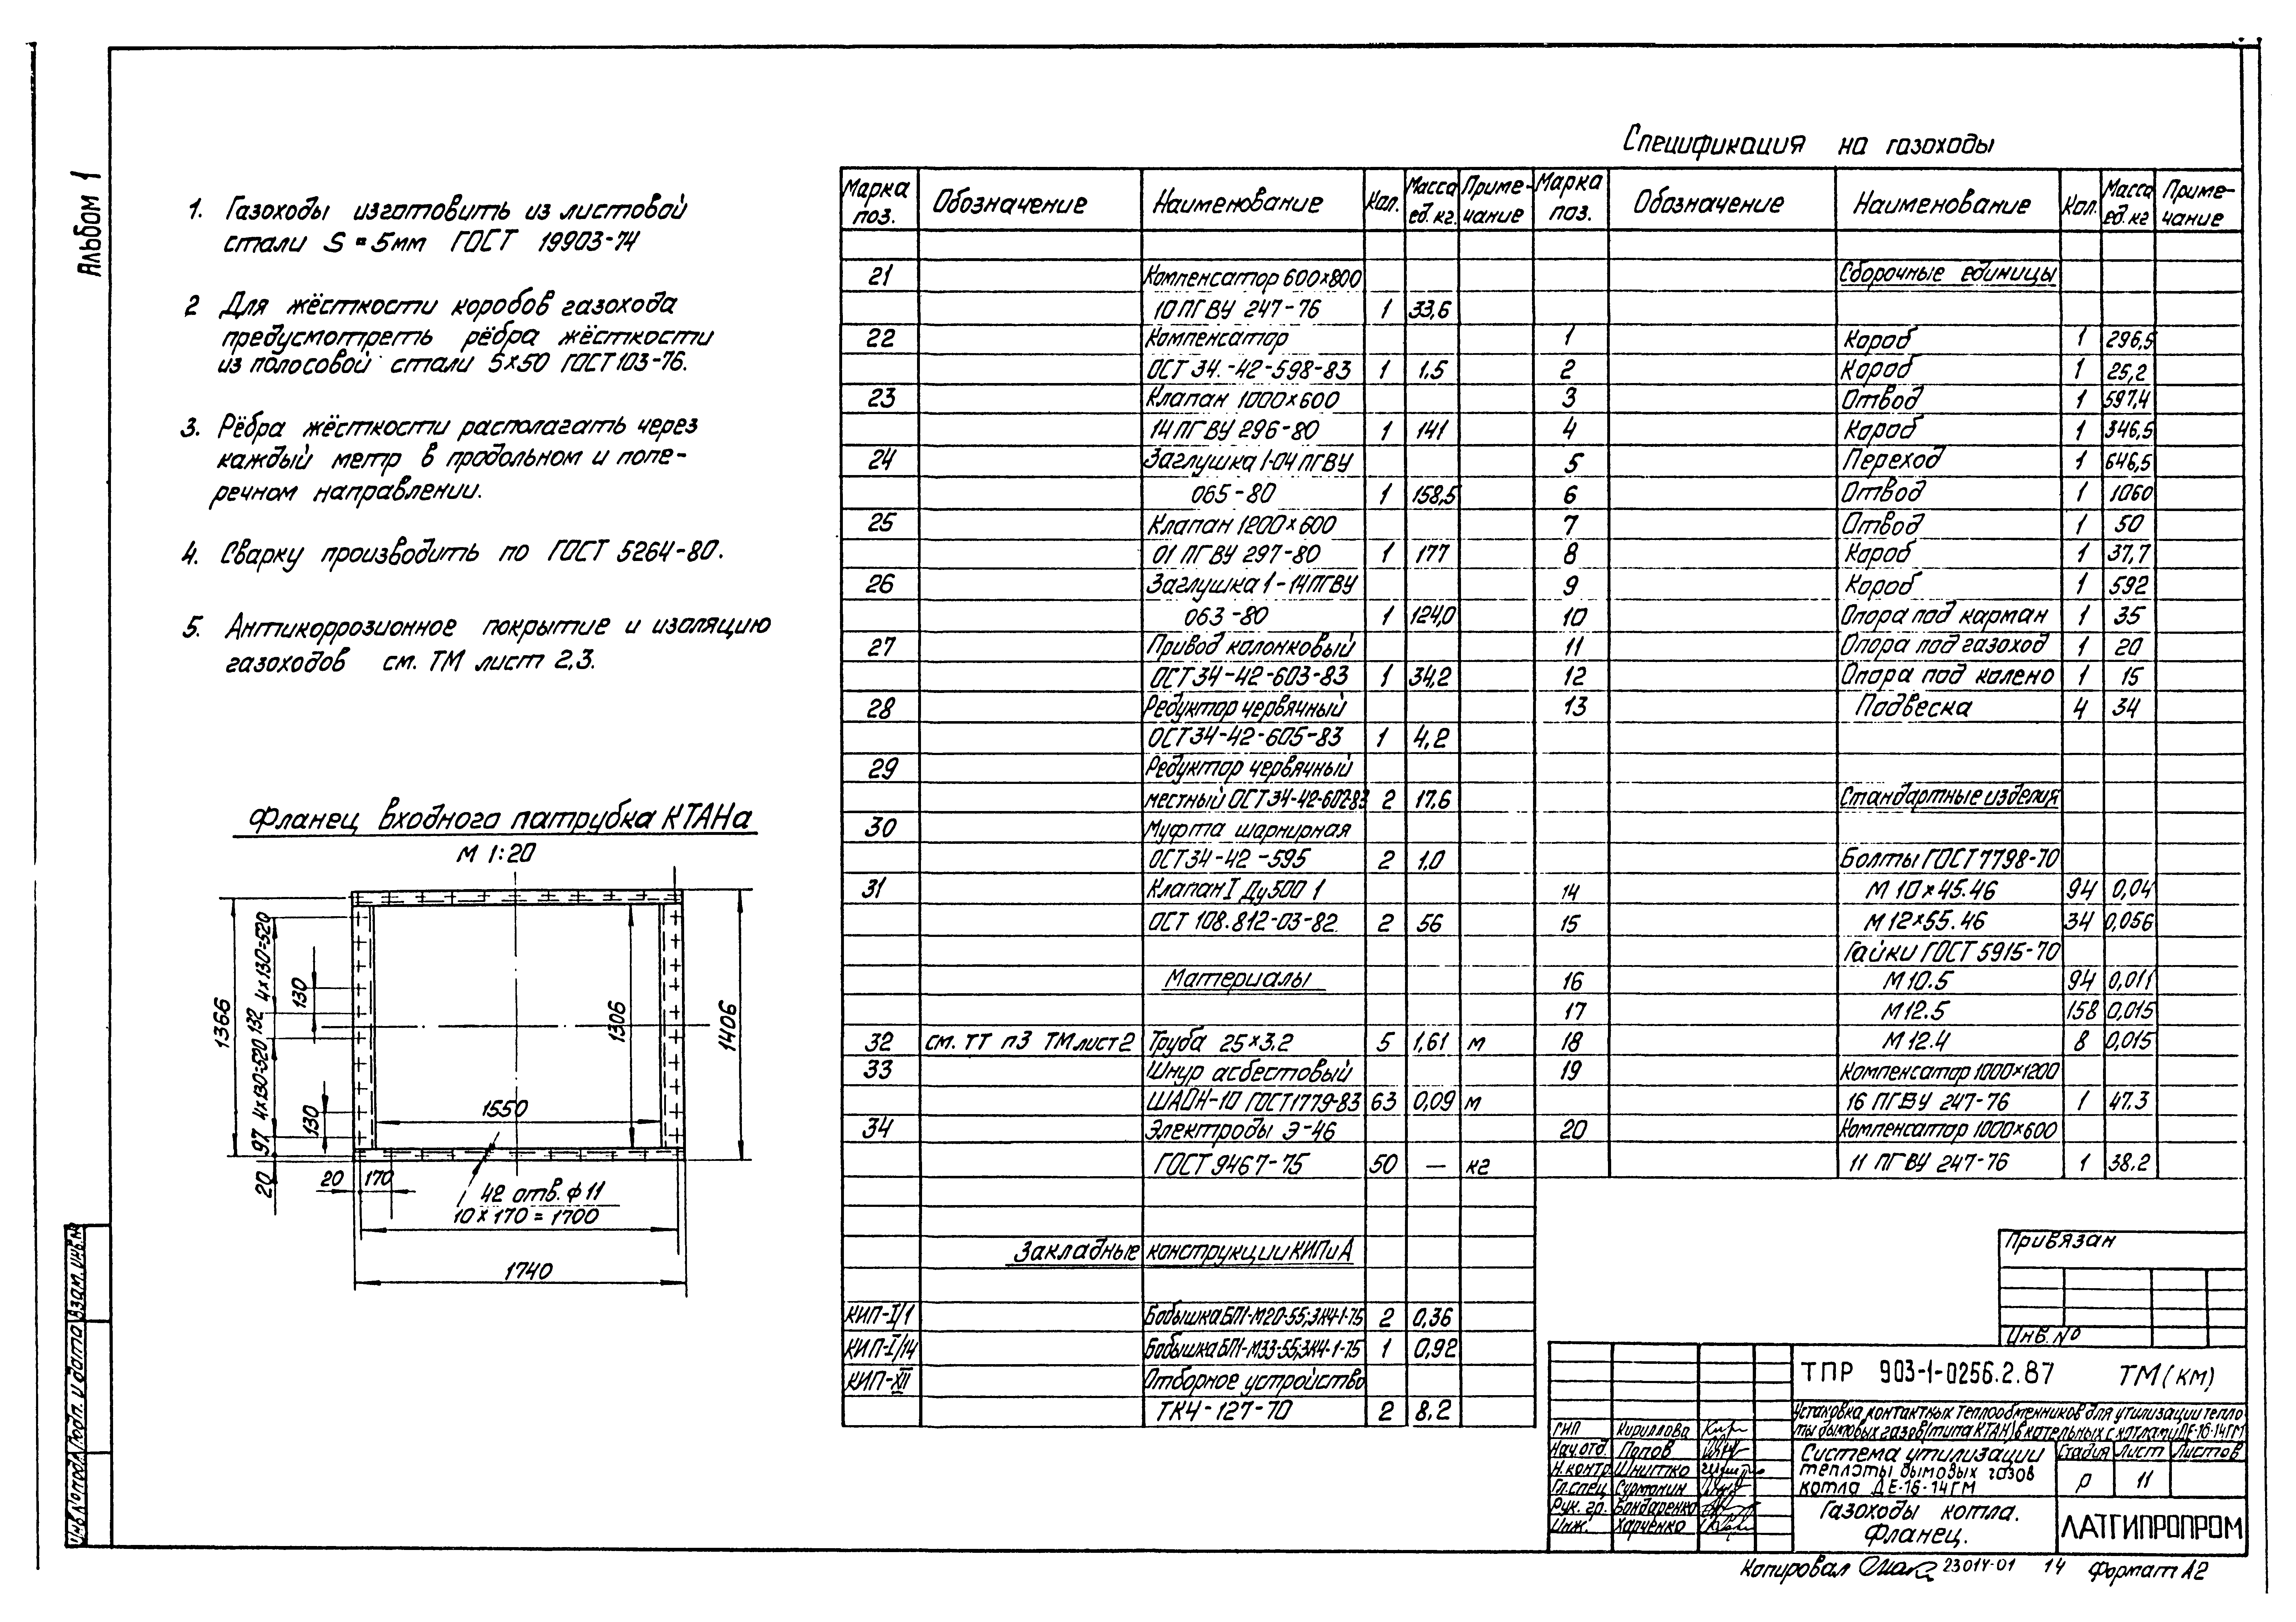 Альбом 1
1. Газоходы изготовить из листовой
стали S = 5мм ГОСТ 19903-74
2 Для жёсткости коробов газохода
предусмотреть рёбра жёсткости
из полосовой стали 5×50 ГОСТ 103-76.
3. Рёбра жёсткости располагать через
каждый метр в продольном и попе-
речном направлении.
4. Сварку производить по ГОСТ 5264-80.
5. Антикоррозионное покрытие и изоляцию
газоходов см. ТМ лист 2,3.
Фланец входного патрубка КТАНа
М 1:20
1366
4×130=520
132
4×130=520
97
20
130
130
1306
1406
1550
20 170
42 отв. ф 11
10 × 170 = 1700
1740
Спецификация на газоходы
Марка поз. Обозначение Наименование Кол. Масса ед. кг. Приме-чание
21 Компенсатор 600×800
10 ПГВУ 247-76 1 33,6
22 Компенсатор
ОСТ 34.-42-598-83 1 1,5
23 Клапан 1000×600
14 ПГВУ 296-80 1 141
24 Заглушка 1-04 ПГВУ
065-80 1 158,5
25 Клапан 1200×600
01 ПГВУ 297-80 1 177
26 Заглушка 1-14 ПГВУ
063-80 1 124,0
27 Привод колонковый
ОСТ 34-42-603-83 1 34,2
28 Редуктор червячный
ОСТ 34-42-605-83 1 4,2
29 Редуктор червячный
местный ОСТ 34-42-602-83 2 17,6
30 Муфта шарнирная
ОСТ 34-42-595 2 1,0
31 Клапан I Ду 500 1
ОСТ 108.812-03-82. 2 56
Материалы
32 см. ТТ п3 ТМ лист 2 Труба 25×3.2 5 1,61 м
33 Шнур асбестовый
ШАОН-10 ГОСТ 1779-83 63 0,09 м
34 Электроды Э-46
ГОСТ 9467-75 50 — кг
Закладные конструкции КИПиА
КИП-I/1 Бобышка БП1-М20-55; ЗК4-1-75 2 0,36
КИП-I/14 Бобышка БП1-М33-55; ЗК4-1-75 1 0,92
КИП-XII Отборное устройство
ТК4-127-70 2 8,2
Марка поз. Обозначение Наименование Кол. Масса ед. кг Приме-чание
Сборочные единицы
1 Короб 1 296,5
2 Короб 1 25,2
3 Отвод 1 597,4
4 Короб 1 346,5
5 Переход 1 646,5
6 Отвод 1 1060
7 Отвод 1 50
8 Короб 1 37,7
9 Короб 1 592
10 Опора под карман 1 35
11 Опора под газоход 1 20
12 Опора под колено 1 15
13 Подвеска 4 34
Стандартные изделия
Болты ГОСТ 7798-70
14 М 10×45.46 94 0,04
15 М 12×55.46 34 0,056
Гайки ГОСТ 5915-70
16 М 10.5 94 0,011
17 М 12.5 158 0,015
18 М 12.4 8 0,015
19 Компенсатор 1000×1200
16 ПГВУ 247-76 1 47.3
20 Компенсатор 1000×600
11 ПГВУ 247-76 1 38.2
Привязан
Инв. №
ТПР 903-1-0256.2.87 ТМ (КМ)
Установка контактных теплообменников для утилизации тепло-
ты дымовых газов (типа КТАН) в котельных с котлами ДЕ-16-14ГМ
ГИП Кириллова
Нач.отд. Попов
Н.контр Шнитко
Гл.спец. Сурмонин
Рук. гр. Бондаренко
Инж. Харченко
Система утилизации
теплоты дымовых газов
котла ДЕ-16-14ГМ
Стадия Лист Листов
Р 11
Газоходы котла.
Фланец.
ЛАТГИПРОПРОМ
Копировал 23014-01 14 Формат А2
Инв.№ подл. Подп. и дата Взам. инв.№